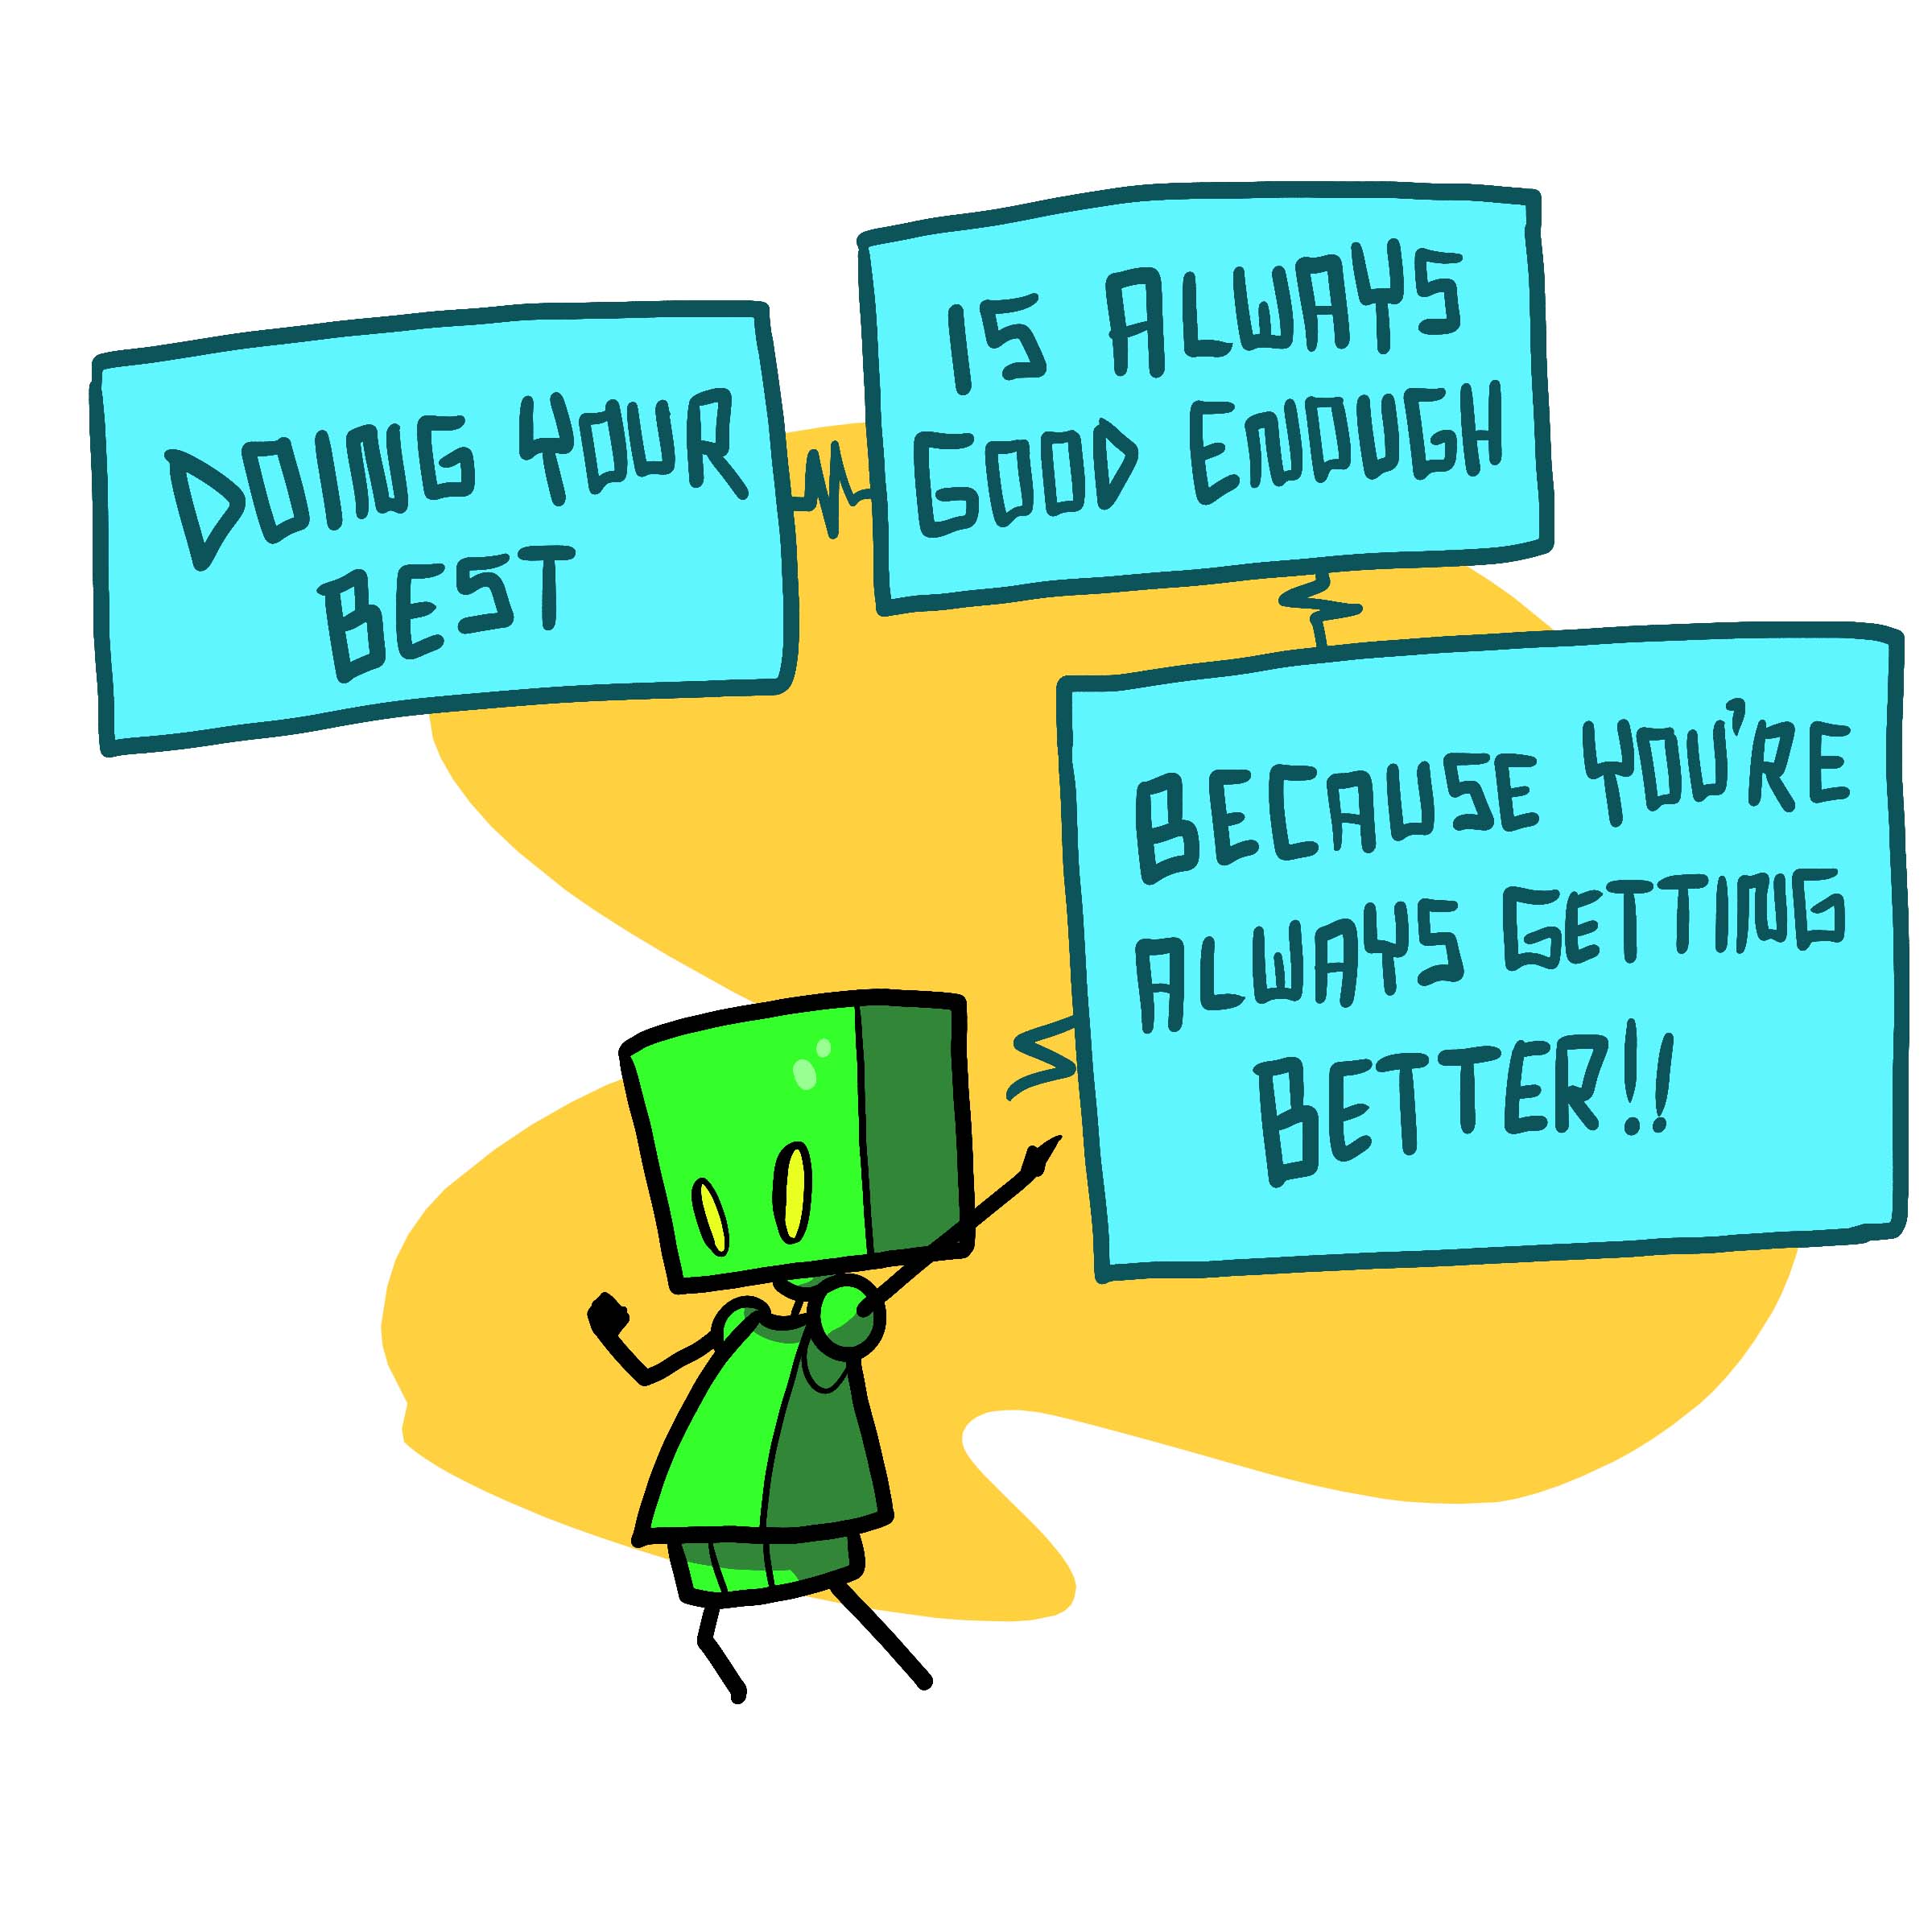 DOING YOUR
BEST
IS ALWAYS
GOOD ENOUGH
BECAUSE YOU'RE
ALWAYS GETTING
BETTER!!